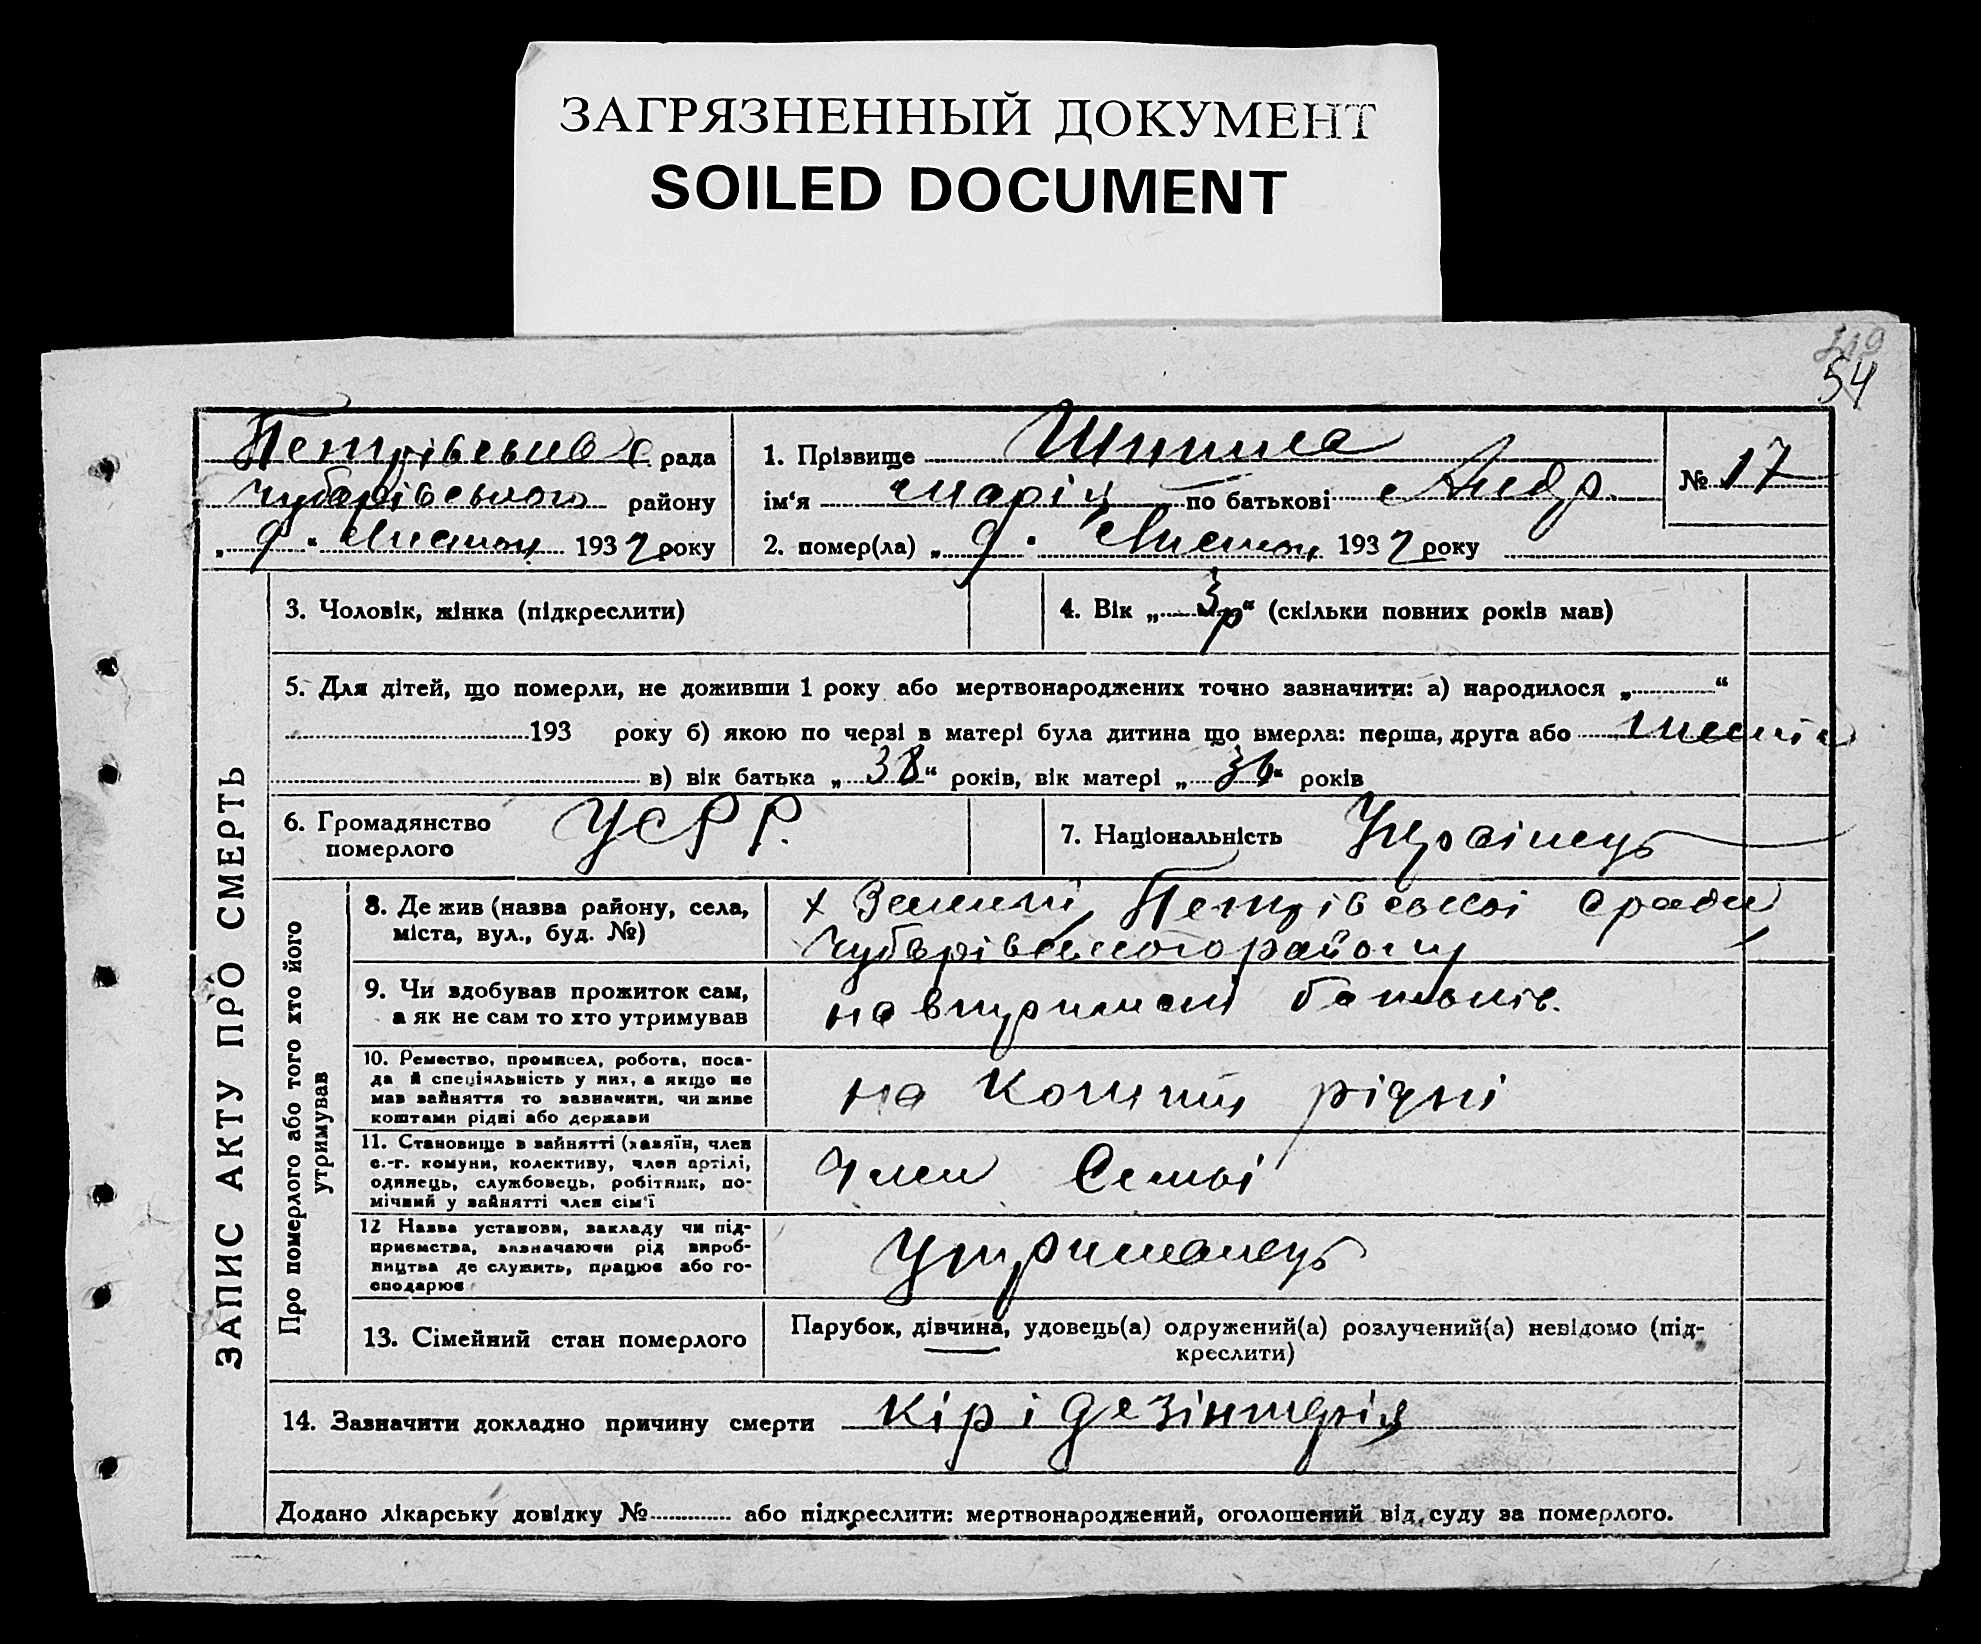 ЗАГРЯЗНЕННЫЙ ДОКУМЕНТ
SOILED DOCUMENT
54
Петрівська рада
Чубарівського району
„ 9 “ Листоп 1932 року
1. Прізвище
ім‘я Марія по батькові Андр.
2. помер(ла) „ 9 “ Листоп 1932 року
№ 17
ЗАПИС АКТУ ПРО СМЕРТЬ
3. Чоловік, жінка (підкреслити)
4. Вік „ 3 р “ (скільки повних років мав)
5. Для дітей, що померли, не доживши 1 року або мертвонароджених точно зазначити: а) народилося „ “
193 року б) якою по черзі в матері була дитина що вмерла: перша, друга або шеста
в) вік батька „ 38 “ років, вік матері „ 36 “ років
6. Громадянство
померлого
УСРР.
7. Національність Українець
Про померлого або того хто його
утримував
8. Де жив (назва району, села,
міста, вул., буд. №)
х Петрівської сради
Чубарівського району
9. Чи здобував прожиток сам,
а як не сам то хто утримував
на втриманні батьків.
10. Ремество, промисел, робота, поса-
да й спеціяльність у них, а якщо не
мав зайняття то зазначити, чи живе
коштами рідні або держави
на кошти рідні
11. Становище в зайнятті (хазяїн, член
с.-г. комуни, колективу, член артілі,
одинець, службовець, робітник, по-
мічний у зайнятті член сім‘ї
Член Семьі
12 Назва установи, закладу чи під-
приємства, зазначаючи рід вироб-
ництва де служить, працює або го-
сподарює
Утриманець
13. Сімейний стан померлого
Парубок, дівчина, удовець(а) одружений(а) розлучений(а) невідомо (під-
креслити)
14. Зазначити докладно причину смерти кір і дезінтерія
Додано лікарську довідку № або підкреслити: мертвонароджений, оголошений від суду за померлого.